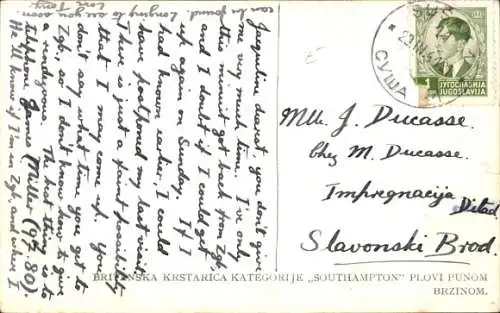 Jacqueline dearest you don't give
me very much time. I've only
this minit got back from Zgb,
and I doubt if I could get
up again on Sunday. If I
had known earlier, I could
have postponed my last visit.
There is just a faint possibility
that I may come up. You
don't say what time you get to
Zgb, so I don't know how to give
a rendezvous. The best thing is to
telephone James Miller (95.80).
He'll know if I'm in Zgb, and where I
can be found. Longing to see you soon.
Love
СУША
1
ЈУГОСЛАВИЈА
JUGOSLAVIJA
Mlle J. Ducasse.
Chez M. Ducasse.
Impregnacija
Slavonski Brod.
BRITANSKA KRSTARICA KATEGORIJE „SOUTHAMPTON" PLOVI PUNOM
BRZINOM.